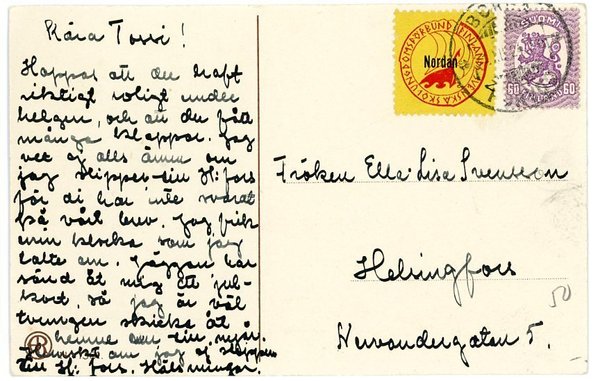 Kära Tossi!
Hoppas att du haft
riktigt roligt under
helgen, och att du fått
många klappar. Jag
vet ej alls ännu om
jag slipper till H:fors
för di har inte svarat
på vårt brev. Jag fick
min klocka som jag
talte om. Jäggan har
sänd åt mig ett jul-
kort, så jag är väl
tvungen skicka åt
henne om
om jag ej slipper
till H: fors. Hälsningar.
SKOLUNGDOMSFÖRBUND I FINLAND
Nordan
SUOMI
60 60
Fröken Ella-Lisa Svensson
Helsingfors
Nervandergatan 5.
50
R